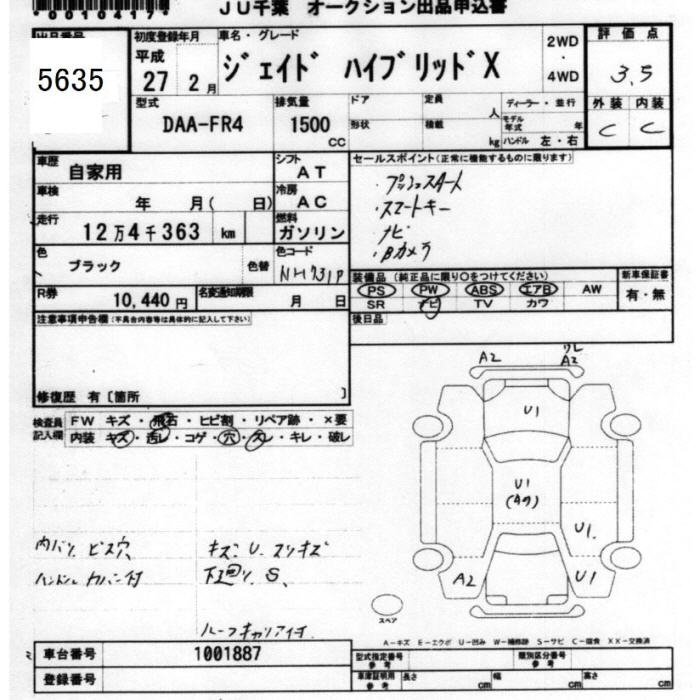 *0010417*
JU千葉 オークション出品申込書
出品番号
5635
初度登録年月
平成
27 2月
車名・グレード
ジェイド ハイブリッドX
2WD
・
4WD
評価点
3.5
外装 内装
C C
型式
DAA-FR4
排気量
1500
CC
ドア
形状
定員
人
積載
kg
ディーラー・並行
モデル年式 年
ハンドル 左・右
車歴
自家用
シフト
AT
車検
年 月( 日)
冷房
AC
走行
12万4千363 km
燃料
ガソリン
色
ブラック
色替
色コード
NH731P
R券
10,440円
名変通知期限
月 日
セールスポイント(正常に機能するものに限ります)
・プッシュスタート
・スマートキー
・ナビ
・Bカメラ
装備品(純正品に限り○をつけてください)
PS PW ABS エアB AW
SR ナビ TV カワ
新車保証書
有・無
後日品
注意事項申告欄(不具合内容等は具体的に記入して下さい)
修復歴 有〔箇所 〕
検査員
記入欄
FW キズ・飛石・ヒビ割・リペア跡・×要
内装 キズ・汚レ・コゲ・穴・スレ・キレ・破レ
内バリ ビス穴、
ハンドル カバー付
キズ、U、スリキズ
下廻り S、
ルーフキャリア付
A2
ワレ
A2
U1
U1
U1
A2
U1
スペア
A-キズ E-エクボ U-凹み W-補修跡 S-サビ C-腐食 XX-交換済
車台番号
1001887
登録番号
型式指定番号
参考
類別区分番号
参考
車庫証明用
参考
長さ cm
幅 cm
高さ cm